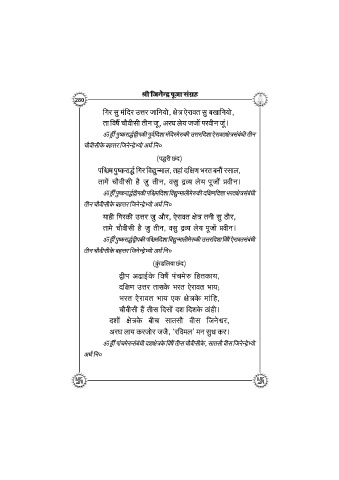 श्री जिनेन्द्र पूजा संग्रह
280
गिर सु मंदिर उत्तर जानियो, क्षेत्र ऐरावत सु बखानियो,
ता विषैं चौवीसी तीन जू, अरघ लेय जजों परवीन जूं।
ॐ ह्रीं पुष्करार्द्धद्वीपकी पूर्वदिशा मंदिरमेरुकी उत्तरदिशा ऐरावतक्षेत्रसंबंधी तीन
चौवीसीके बहत्तर जिनेन्द्रेभ्यो अर्घ नि०
(पद्धरी छंद)
पश्चिम पुष्करार्द्ध गिर विद्युन्माल, तहां दक्षिण भरत बनौं रसाल,
तामें चौवीसी है जु तीन, वसु द्रव्य लेय पूजों प्रवीन।
ॐ ह्रीं पुष्करार्द्धद्वीपकी पश्चिमदिशा विद्युन्मालीमेरुकी दक्षिणदिशा भरतक्षेत्रसंबंधी
तीन चौवीसीके बहत्तर जिनेन्द्रेभ्यो अर्घ नि०
याही गिरकी उत्तर जु और, ऐरावत क्षेत्र तनी सु ठौर,
तामे चौवीसी है जु तीन, वसु द्रव्य लेय पूजों प्रवीन।
ॐ ह्रीं पुष्करार्द्धद्वीपकी पश्चिमदिशा विद्युन्मालीमेरुकी उत्तरदिशा विषैं ऐरावतसंबंधी
तीन चौवीसीके बहत्तर जिनेन्द्रेभ्यो अर्घ नि०
(कुंडलिया छंद)
द्वीप अढाईके विषैं पंचमेरु हितकाय,
दक्षिण उत्तर तासके भरत ऐरावत भाय;
भरत ऐरावत भाय एक क्षेत्रके मांहि,
चौवीसी हैं तीस दिसों दश दिशके ठांही।
दशों क्षेत्रके बीच सातसौ वीस जिनेश्वर,
अरघ लाय करजोर जजै, 'रविमल' मन सुध कर।
ॐ ह्रीं पांचमेरुसंबंधी दशक्षेत्रके विषैं तीस चौवीसीके, सातसौ वीस जिनेन्द्रेभ्यो
अर्घ नि०